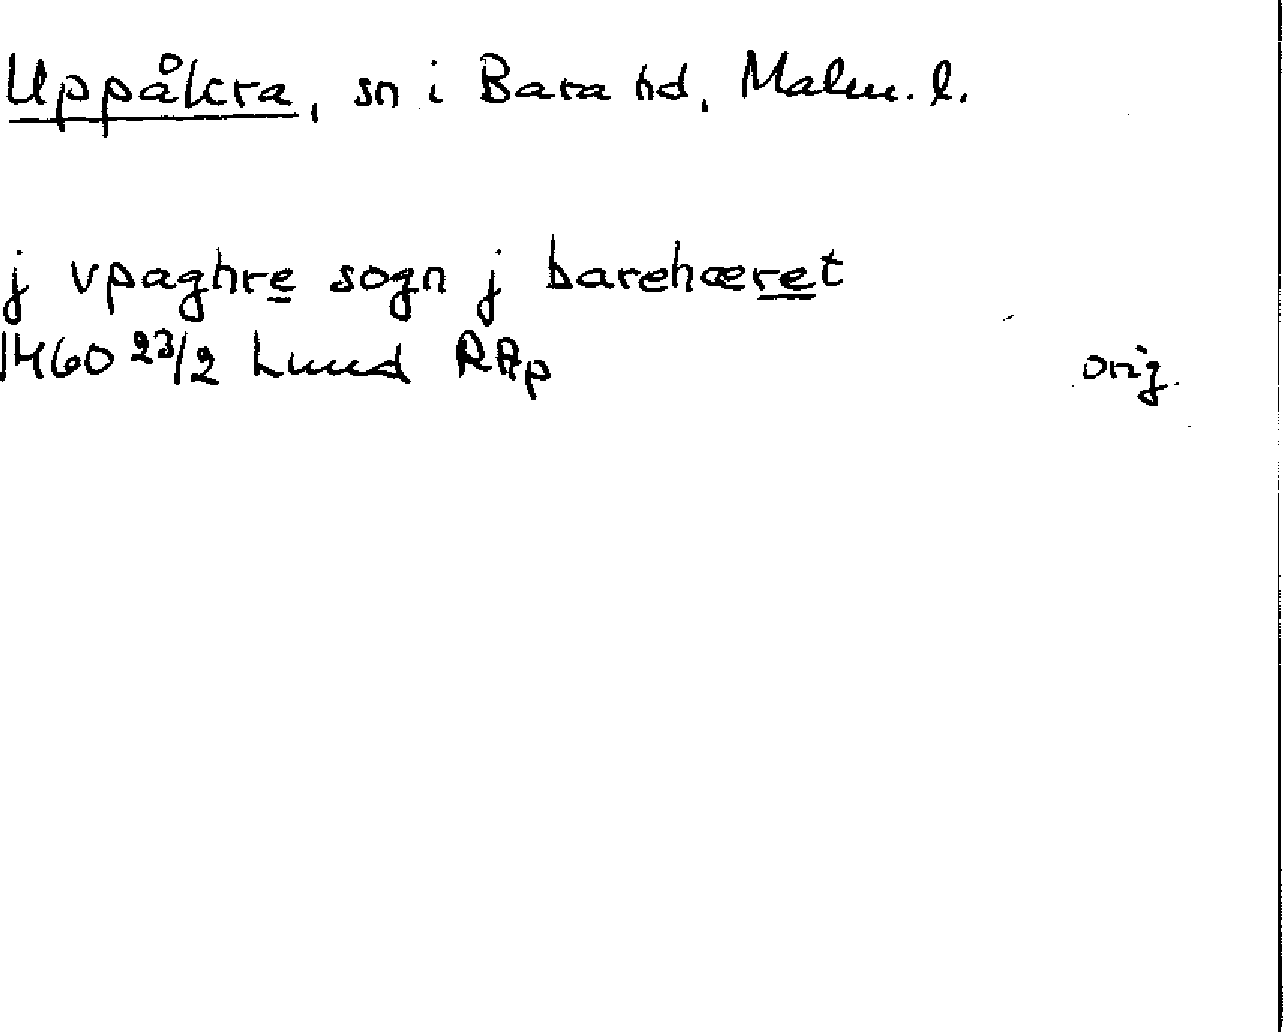 Uppåkra, sn i Bara hd, Malm. l.
j vpaghre sogn j barehæret
1460 23/2 Lund RAp orig.